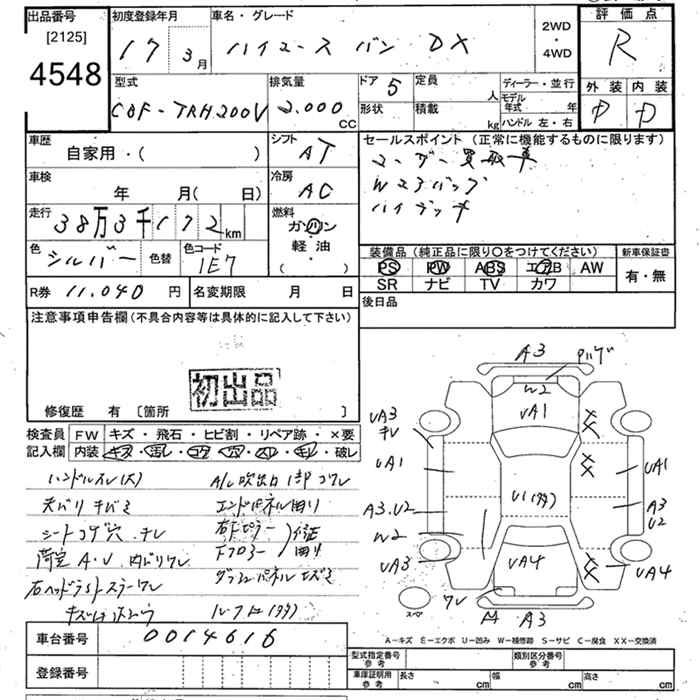 出品番号 初度登録年月 車名・グレード 評価点
[2125]
4548
17 3月 ハイエース バン DX
2WD
・
4WD
R
型式 排気量 ドア 5 定員 人 ディーラー・並行
モデル年式 年
外装 内装
CBF-TRH200V 2.000 CC
形状 積載 kg ハンドル 左・右
D D
車歴 シフト セールスポイント (正常に機能するものに限ります)
自家用・( ) AT
ユーザー買取車
車検 冷房
年 月( 日) AC
Wエアバッグ
走行 燃料
38万3千172km ガソリン
軽油
・
( )
色 シルバー 色替 色コード 1E7
装備品 (純正品に限り〇をつけてください) 新車保証書
PS PW ABS エアB AW
SR ナビ TV カワ
有・無
R券 11.040 円 名変期限 月 日
後日品
注意事項申告欄(不具合内容等は具体的に記入して下さい)
初出品
修復歴 有 [箇所 ]
検査員 FW キズ・飛石・ヒビ割・リペア跡・×要
記入欄 内装 キズ・汚レ・コゲ・穴・スレ・モレ・破レ
ハンドルスレ(大)
天バリ キバミ
シートコゲ穴 チレ
荷室A・U 内バリワレ
A3
W2
UA1
UA3
チレ
UA1
A3.U2
W2
UA3
UA1
A3
U2
UA4
UA4
ワレ
A3
スペア
A-キズ E-エクボ U-凹み W-補修跡 S-サビ C-腐食 XX-交換済
車台番号 0014616
登録番号
型式指定番号 参考 類別区分番号 参考
車庫証明用 参考 長さ cm 幅 cm 高さ cm